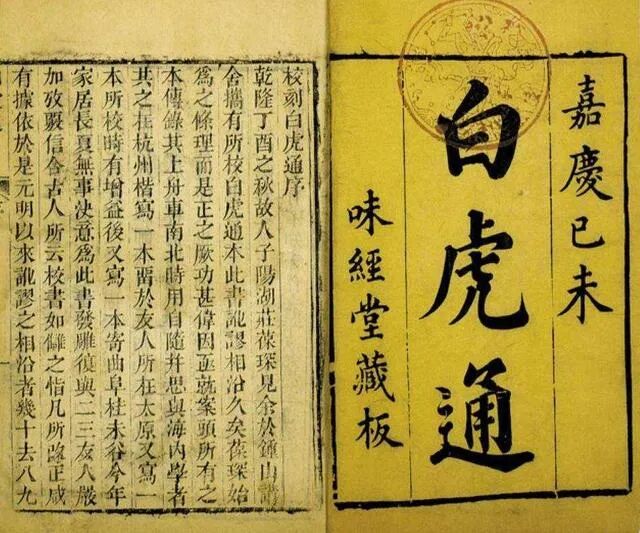 嘉慶已未
白虎通
味經堂藏板
校刻白虎通序
乾隆丁酉之秋故人子陽湖莊葆琛見余於鍾山講
舍攜有所校白虎通本此書訛謬相沿久矣葆琛始
爲之條理而是正之厥功甚偉因亟就案頭所有之
本傳錄其上舟車南北時用自隨并思與海內學者
共之在杭州楷寫一本畱於友人所在太原又寫一
本所校時有增益後又寫一本寄曲阜桂未谷今年
家居長夏無事決意爲此書發雕復與二三友人嚴
加攷覈信合古人所云校書如讎之恉凡所改正咸
有據依於是元明以來訛謬之相沿者幾十去八九